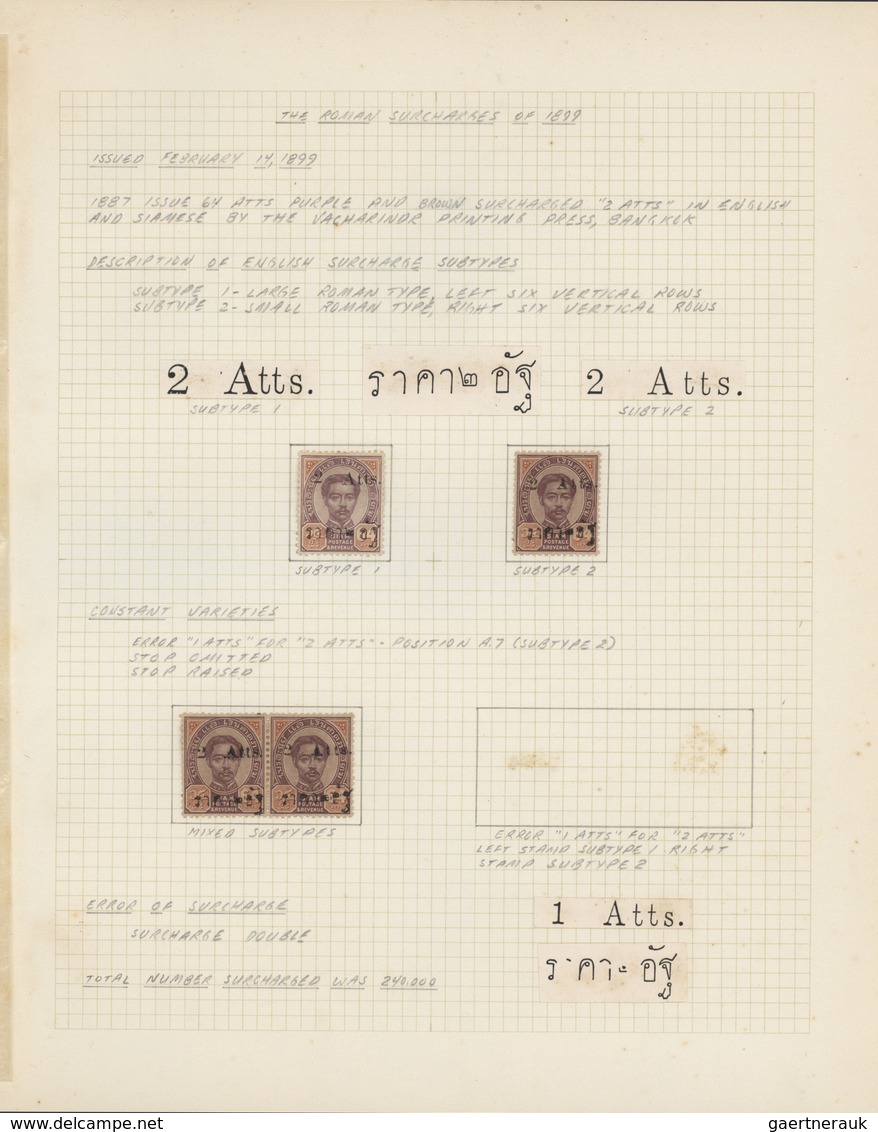 THE ROMAN SURCHARGES OF 1899
ISSUED FEBRUARY 14, 1899
1887 ISSUE 64 ATTS PURPLE AND BROWN SURCHARGED "2 ATTS" IN ENGLISH
AND SIAMESE BY THE VACHARINDR PRINTING PRESS, BANGKOK
DESCRIPTION OF ENGLISH SURCHARGE SUBTYPES
SUBTYPE 1 - LARGE ROMAN TYPE, LEFT SIX VERTICAL ROWS
SUBTYPE 2 - SMALL ROMAN TYPE, RIGHT SIX VERTICAL ROWS
2 Atts. ราคา๒ อัฐ 2 Atts.
SUBTYPE 1 SUBTYPE 2
2 Atts.
SIAM
POSTAGE
&REVENUE
2 Atts
SIAM
POSTAGE
&REVENUE
SUBTYPE 1 SUBTYPE 2
CONSTANT VARIETIES
ERROR "1 ATTS" FOR "2 ATTS" - POSITION A.7 (SUBTYPE 2)
STOP OMITTED
STOP RAISED
2 Atts. 2 Atts.
SIAM SIAM
POSTAGE POSTAGE
&REVENUE &REVENUE
MIXED SUBTYPES
ERROR "1 ATTS" FOR "2 ATTS"
LEFT STAMP SUBTYPE 1 RIGHT
STAMP SUBTYPE 2
ERROR OF SURCHARGE
SURCHARGE DOUBLE
1 Atts.
TOTAL NUMBER SURCHARGED WAS 240,000
gaertnerauk